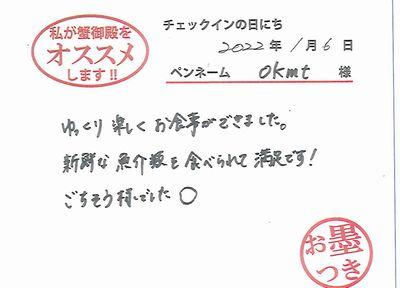 私が蟹御殿を
オススメ
します!!
チェックインの日にち
2022年 1月 6日
ペンネーム okmt 様
ゆっくり 楽しく お食事ができました。
新鮮な 魚介類を 食べられて 満足です!
ごちそう様でした ○
お墨
つき